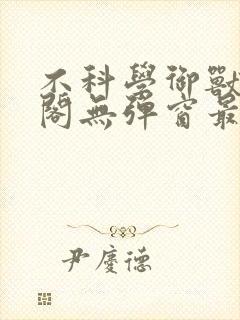 不科學御獸
閣無彈窗最
尹慶德